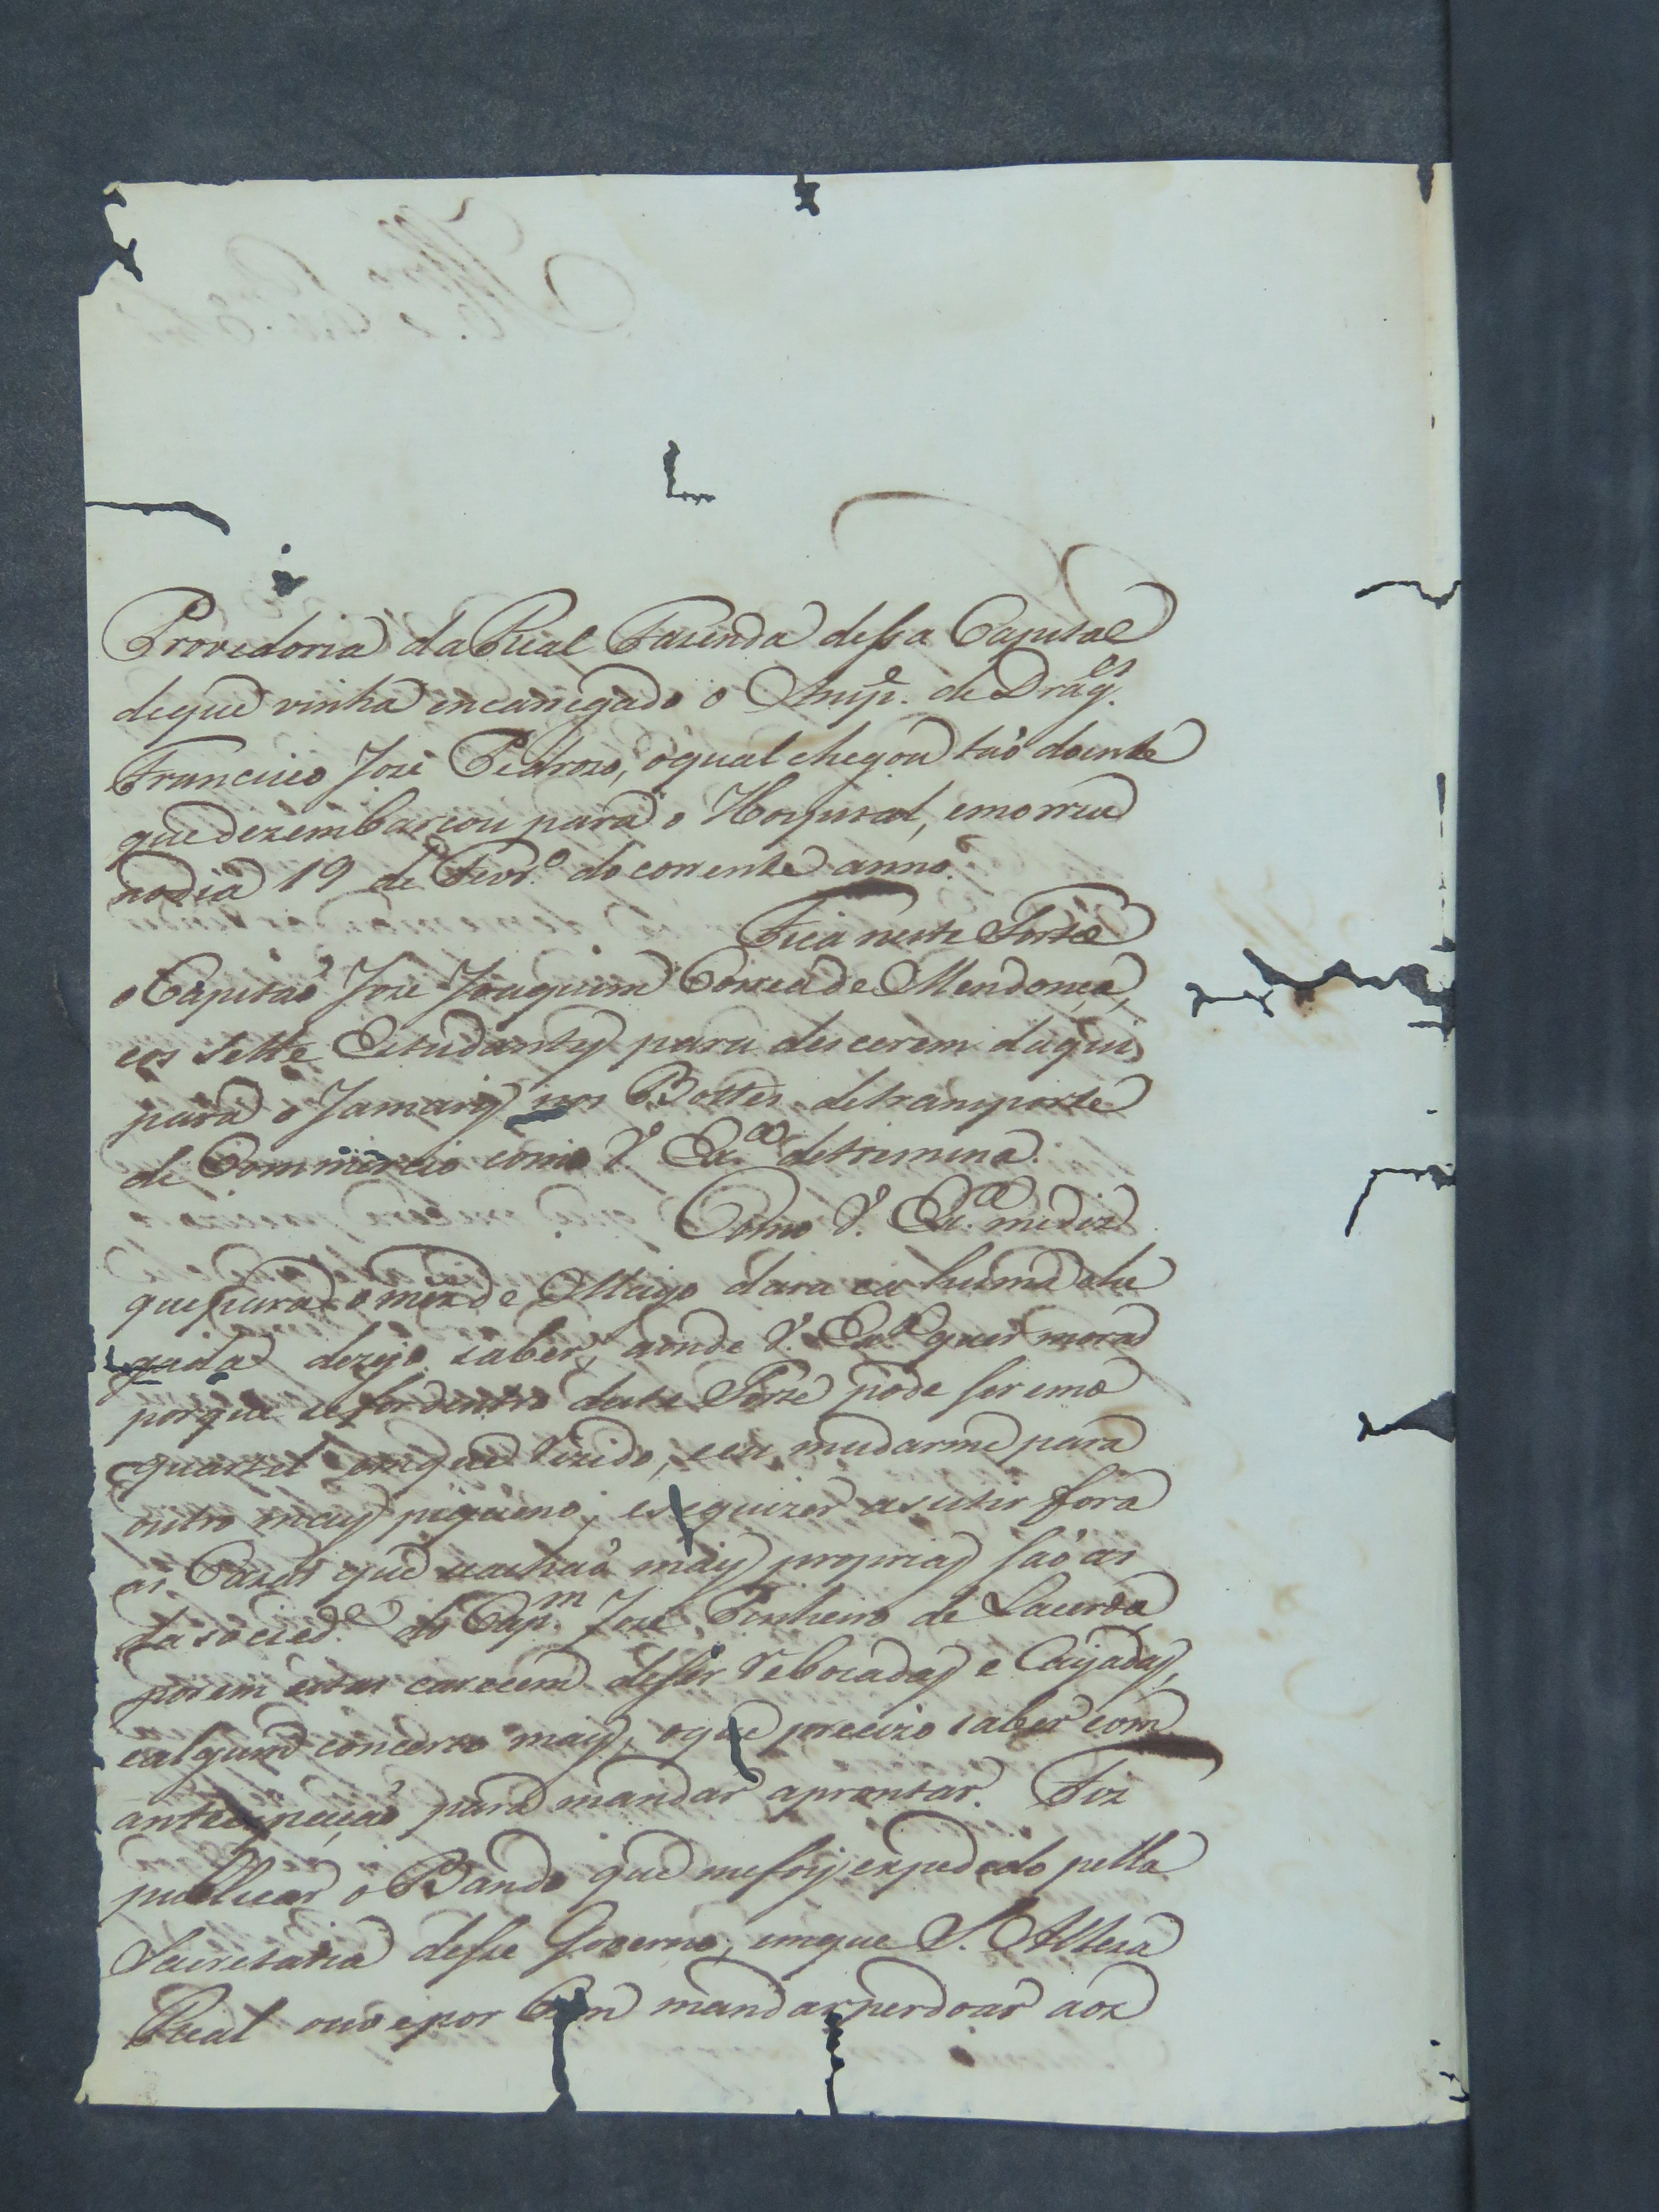 Provedoria da Real Fazenda dessa Capital
deque vinha encarregado o Ansp.e de Drag.es
Francisco Jozé Pedrozo, oqual chegou taõ doente
que dezembarcou para o Hospital, emorreu
nodia 19 de Fevr.o docorrente anno.
Fica neste Forte
o Capitaõ Joze Joaquim Correa de Mendonça,
eos sette Estudantes para descerem daqui
para o Jamary nos Bottes detransporte
de Commercio como V. Ex.a detremina.
Como V. Ex.a mediz
que para o mez de Mayo dara ca huma che
gada dezejo saber, aonde V. Ex.a quer morar
porque sefor dentro deste Forte pode ser emo
quartel emque Rezido, eeu mudarme para
outro mais piqueno; esequizer asistir fora
as Cazas que seachaõ mais proprias saõ as
dasocied.e do Cap.m Joze Pinheiro de Lacerda
porem estas carecem deser Rebocadas e Caijadas,
ealgum concerto mais, oque precizo saber com
antecipaçaõ para mandar aprontar. Fiz
publicar o Bando que mefoy expedido pella
Secretaria desse Governo, emque S. Alteza
Real ouve por bem mandar perdoar aoz